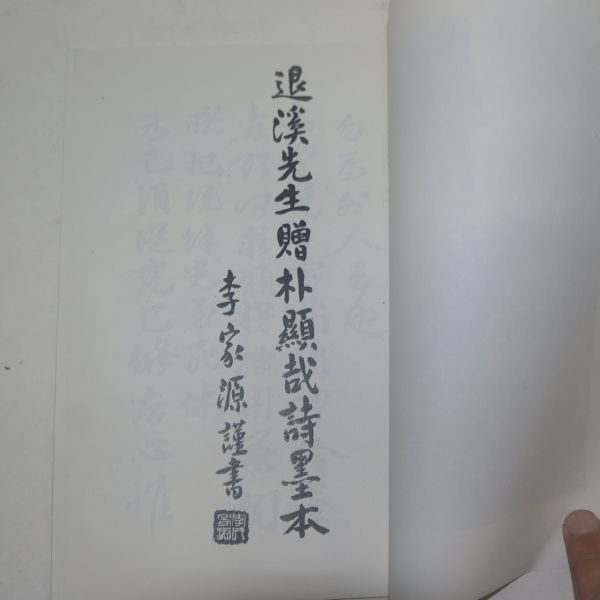 退溪先生贈朴顯哉詩墨本
李家源謹書